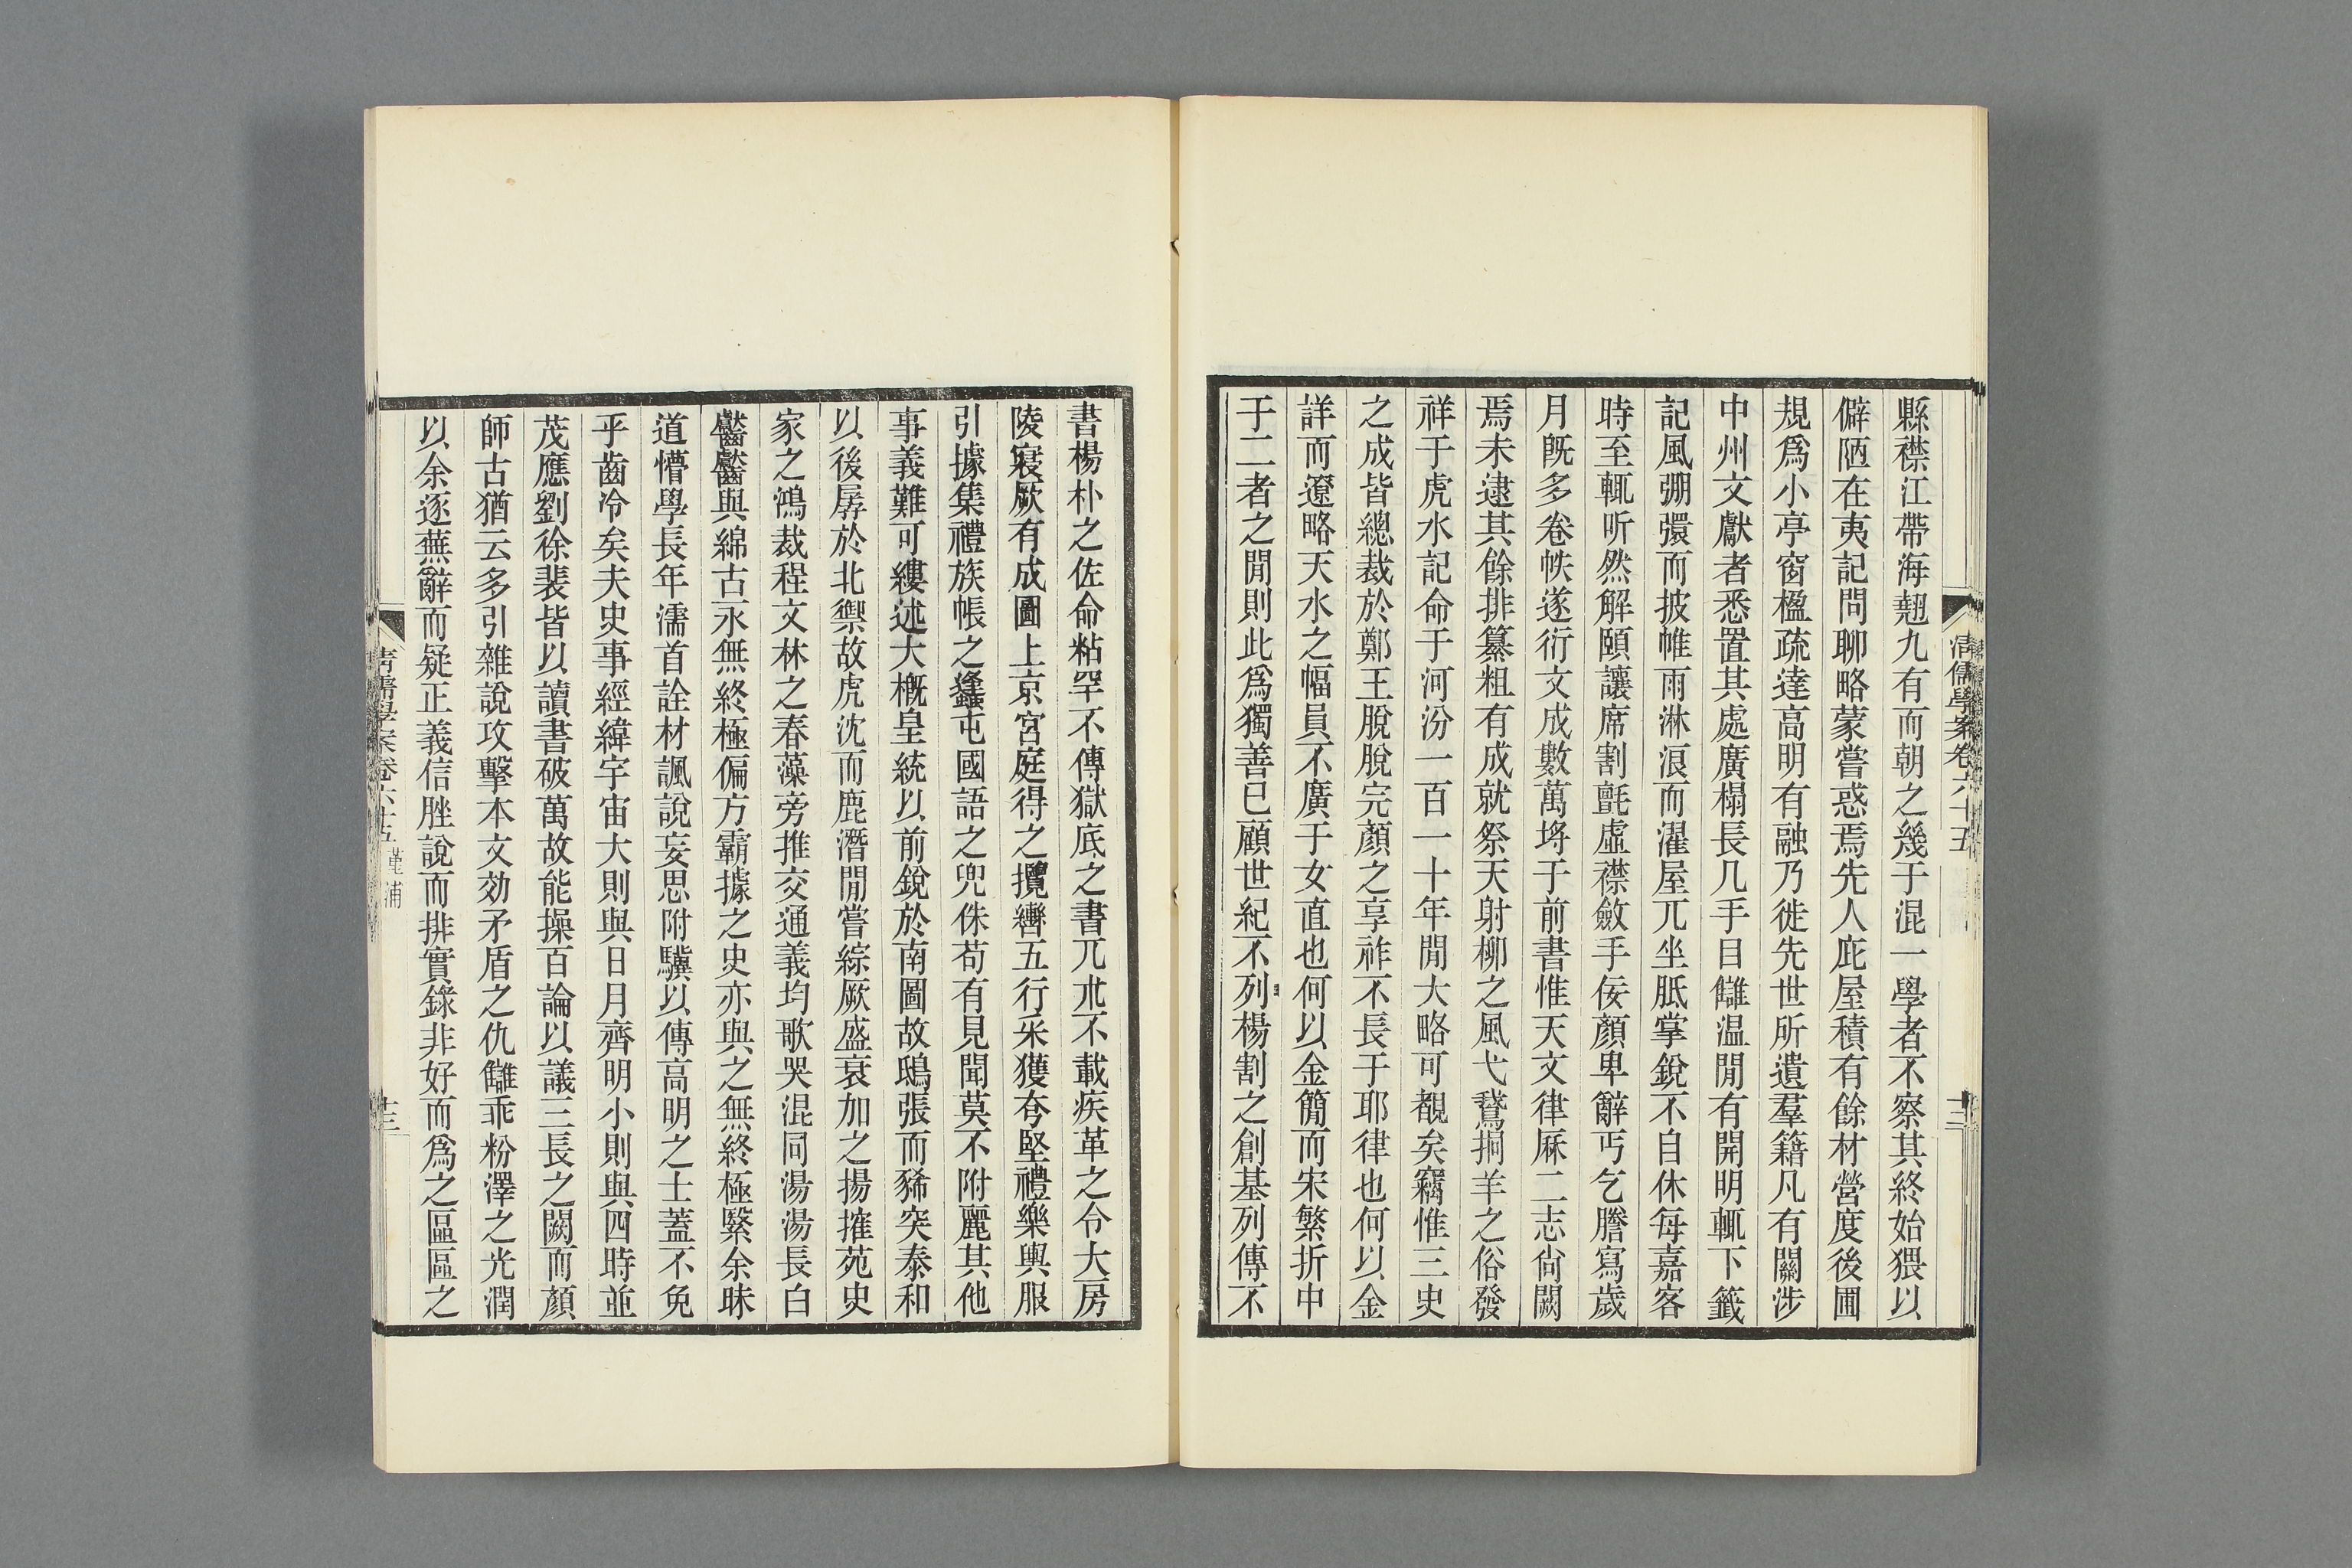 縣襟江帶海翹九有而朝之幾于混一學者不察其終始猥以
僻陋在夷記問聊略蒙嘗惑焉先人庇屋積有餘材營度後圃
規爲小亭窗楹疏達高明有融乃徙先世所遺羣籍凡有關涉
中州文獻者悉置其處廣榻長几手目讎溫閒有開明輒下籤
記風弸彋而披帷雨淋浪而濯屋兀坐胝掌銳不自休每嘉客
時至輒听然解頤讓席割氈虛襟斂手佞顏卑辭丐乞謄寫歲
月旣多卷帙遂衍文成數萬埒于前書惟天文律厤二志尙闕
焉未逮其餘排纂粗有成就祭天射柳之風弋鵞挏羊之俗發
祥于虎水記命于河汾一百一十年閒大略可覩矣竊惟三史
之成皆總裁於鄭王脫脫完顏之享祚不長于耶律也何以金
詳而遼略天水之幅員不廣于女直也何以金簡而宋繁折中
于二者之閒則此爲獨善已顧世紀不列楊割之創基列傳不
書楊朴之佐命粘罕不傳獄底之書兀朮不載疾革之令大房
陵寢厥有成圖上京宮庭得之攬轡五行采獲夯堅禮樂輿服
引據集禮族帳之蠭屯國語之兜侏苟有見聞莫不附麗其他
事義難可縷述大槪皇統以前銳於南圖故鴟張而豨突泰和
以後孱於北禦故虎沈而鹿潛閒嘗綜厥盛衰加之揚搉苑史
家之鴻裁程文林之春藻旁推交通義均歌哭混同湯湯長白
齾齾與綿古永無終極偏方霸據之史亦與之無終極緊余昧
道懵學長年濡首詮材諷說妄思附驥以傳高明之士蓋不免
乎齒冷矣夫史事經緯宇宙大則與日月齊明小則與四時並
茂應劉徐裴皆以讀書破萬故能操百論以議三長之闕而顏
師古猶云多引雜說攻擊本文効矛盾之仇讎乖粉澤之光潤
以余逐蕪辭而疑正義信脞說而排實錄非好而爲之區區之
清儒學案卷六十五
十三
清儒學案卷六十五 堇浦
十三